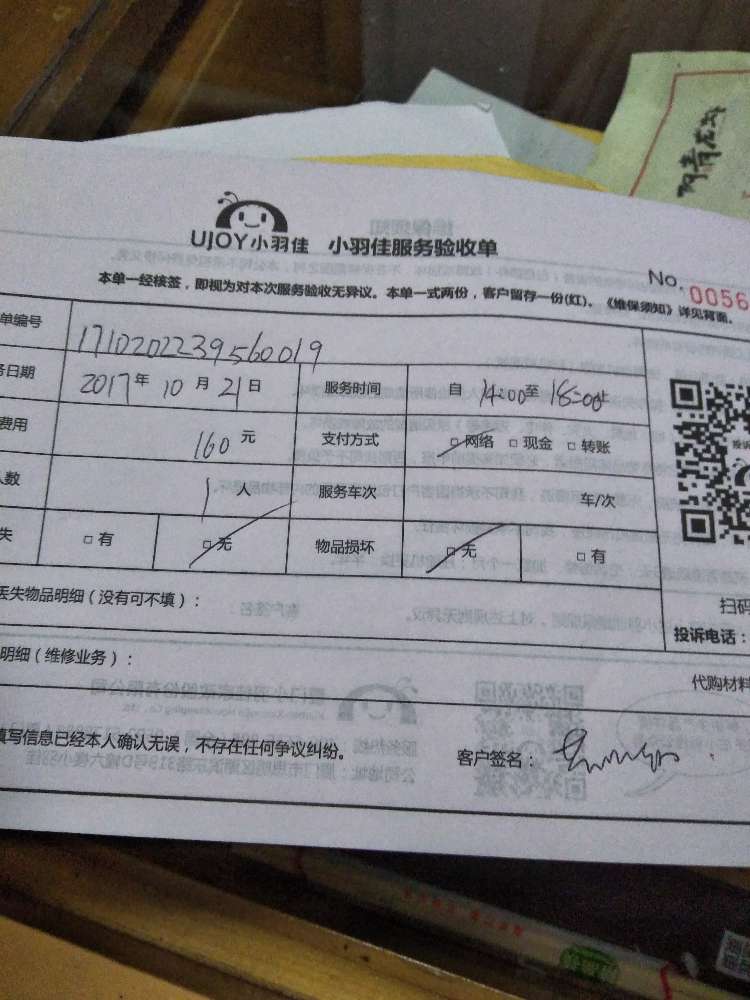 阿青落戈
UJOY小羽佳 小羽佳服务验收单
No. 0056
本单一经核签，即视为对本次服务验收无异议。本单一式两份，客户留存一份(红)。《维保须知》详见背面。
单编号 1710202239560019
务日期 2017年10月21日 服务时间 自14:00至18:00止
费用 160元 支付方式 □网络 □现金 □转账
人数 1人 服务车次 车/次
失 □有 □无 物品损坏 □无 □有
丢失物品明细（没有可不填）：
扫码
投诉电话：
明细（维修业务）：
代购材料
填写信息已经本人确认无误，不存在任何争议纠纷。
客户签名：